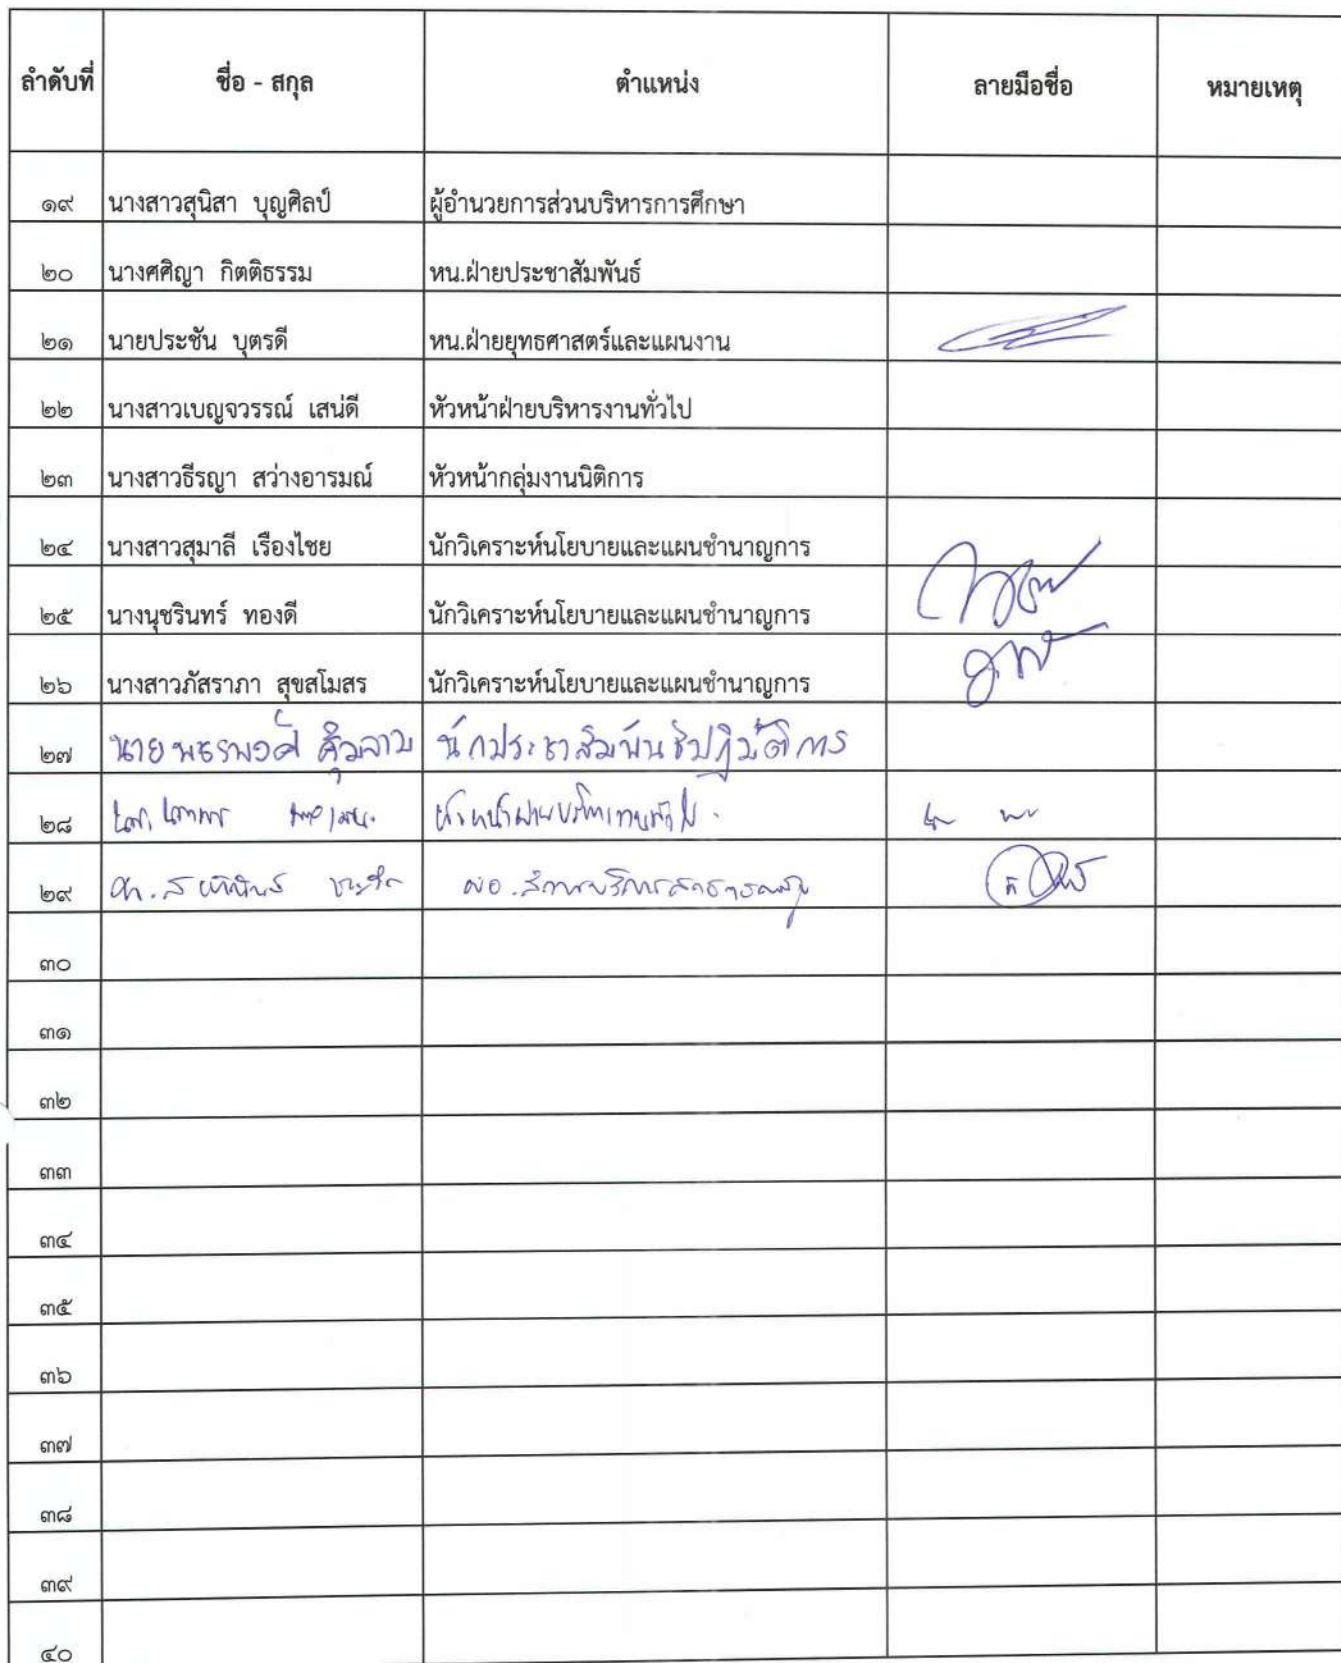 ลำดับที่ ชื่อ - สกุล ตำแหน่ง ลายมือชื่อ หมายเหตุ
๑๙ นางสาวสุนิสา บุญศิลป์ ผู้อำนวยการส่วนบริหารการศึกษา
๒๐ นางศศิญา กิตติธรรม หน.ฝ่ายประชาสัมพันธ์
๒๑ นายประชัน บุตรดี หน.ฝ่ายยุทธศาสตร์และแผนงาน
๒๒ นางสาวเบญจวรรณ์ เสน่ดี หัวหน้าฝ่ายบริหารงานทั่วไป
๒๓ นางสาวธีรญา สว่างอารมณ์ หัวหน้ากลุ่มงานนิติการ
๒๔ นางสาวสุมาลี เรืองไชย นักวิเคราะห์นโยบายและแผนชำนาญการ
๒๕ นางนุชรินทร์ ทองดี นักวิเคราะห์นโยบายและแผนชำนาญการ
๒๖ นางสาวภัสราภา สุขสโมสร นักวิเคราะห์นโยบายและแผนชำนาญการ
๒๗ นาย นักประชาสัมพันธ์ปฏิบัติการ
๒๘ หัวหน้าฝ่ายบริหารงานทั่วไป
๒๙
๓๐
๓๑
๓๒
๓๓
๓๔
๓๕
๓๖
๓๗
๓๘
๓๙
๔๐